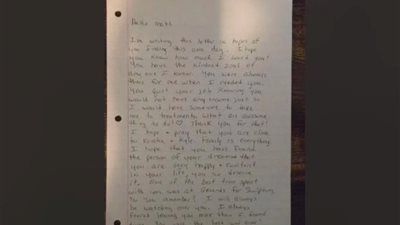 Hello Matt
I'm writing this letter in hopes of
you finding this one day. I hope
you know how much I loved you!
You have the kindest soul of
anyone I know. You were always
there for me when I needed you.
You quit your job knowing you
would not have any income just so
I would have someone to take
me to treatments. What an awesome
thing to do! Thank you for that!
I hope & pray that you are close
to & Kyle. Family is everything
I hope that you have found
the person of your dreams & that
you are very happy & content
in your life, you so deserve
it. One of the best times spent
with you was at for
Do you remember? I will always
be watching over you. I always
loving you more than I